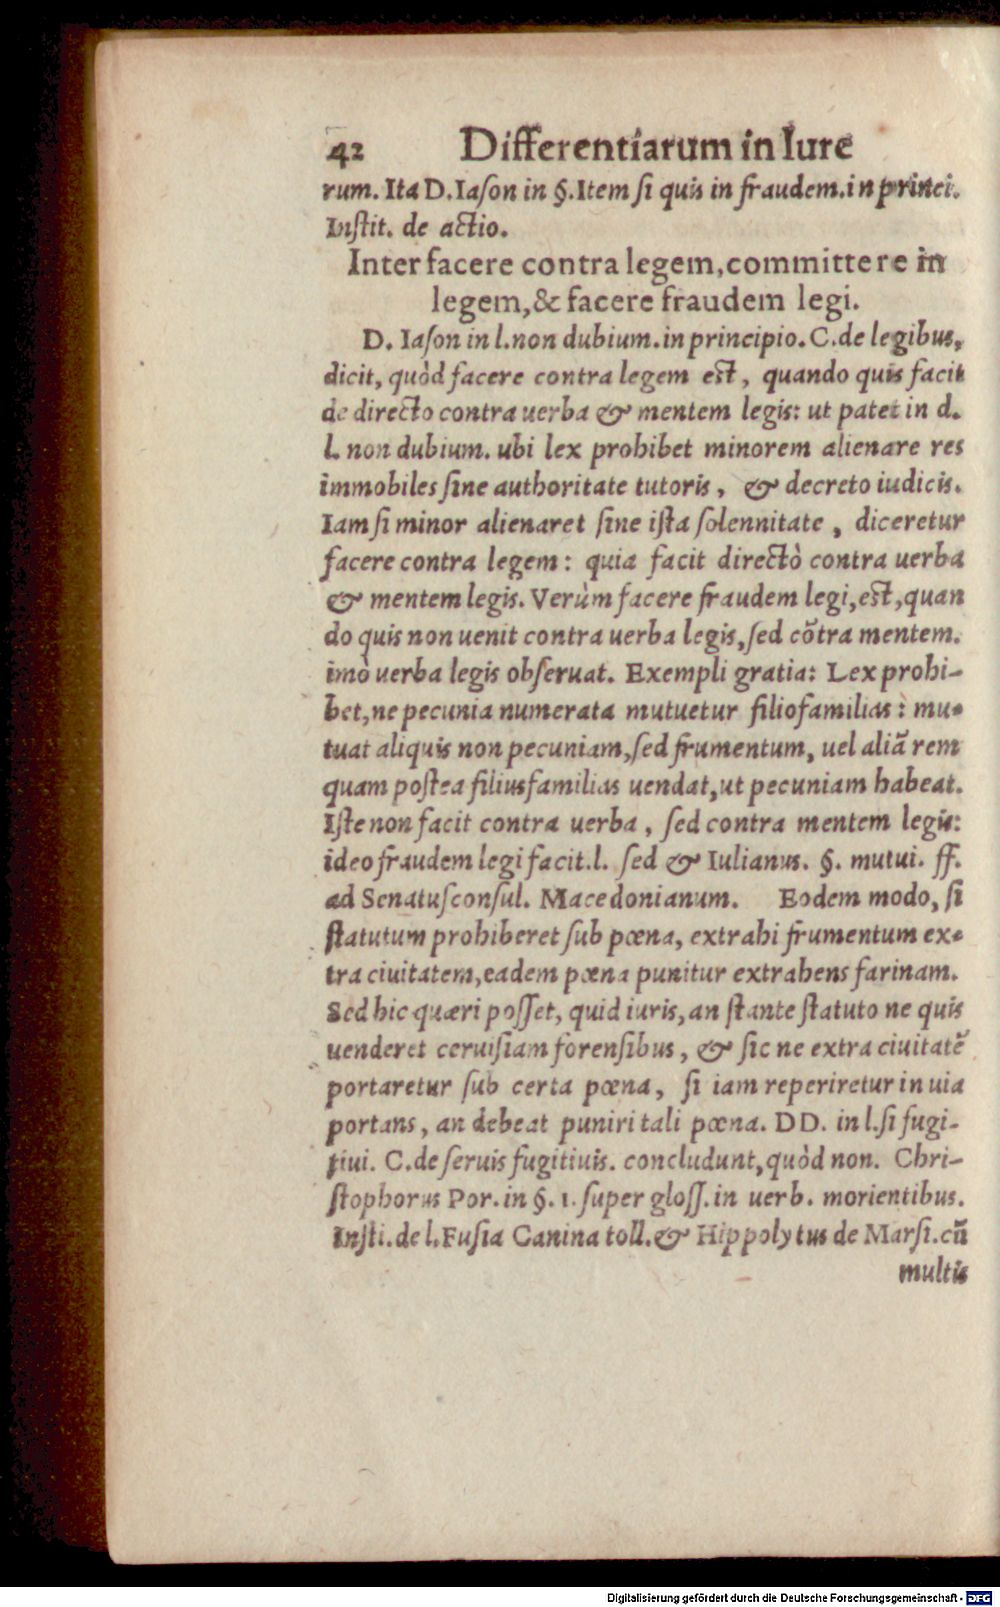 42 Differentiarum in Iure
rum. Ita D. Iaſon in §. Item ſi quis in fraudem. in princi.
Inſtit. de actio.
Inter facere contra legem, committere in
legem, & facere fraudem legi.
D. Iaſon in l. non dubium. in principio. C. de legibus,
dicit, quòd facere contra legem eſt, quando quis facit
de directo contra uerba & mentem legis: ut patet in d.
l. non dubium. ubi lex prohibet minorem alienare res
immobiles ſine authoritate tutoris, & decreto iudicis.
Iam ſi minor alienaret ſine iſta ſolennitate, diceretur
facere contra legem: quia facit directò contra uerba
& mentem legis. Verùm facere fraudem legi, eſt, quan
do quis non uenit contra uerba legis, ſed cõtra mentem.
imò uerba legis obſeruat. Exempli gratia: Lex prohi-
bet, ne pecunia numerata mutuetur filiofamilias: mu-
tuat aliquis non pecuniam, ſed frumentum, uel aliã rem
quam poſtea filiusfamilias uendat, ut pecuniam habeat.
Iſte non facit contra uerba, ſed contra mentem legis:
ideo fraudem legi facit. l. ſed & Iulianus. §. mutui. ff.
ad Senatuſconſul. Macedonianum. Eodem modo, ſi
ſtatutum prohiberet ſub pœna, extrahi frumentum ex-
tra ciuitatem, eadem pœna punitur extrahens farinam.
Sed hic quæri poſſet, quid iuris, an ſtante ſtatuto ne quis
uenderet ceruiſiam forenſibus, & ſic ne extra ciuitatẽ
portaretur ſub certa pœna, ſi iam reperiretur in uia
portans, an debeat puniri tali pœna. DD. in l. ſi fugi-
tiui. C. de ſeruis fugitiuis. concludunt, quòd non. Chri-
ſtophorus Por. in §. 1. ſuper gloſſ. in uerb. morientibus.
Inſti. de l. Fuſia Canina toll. & Hippolytus de Marſi. cũ
multis
Digitalisierung gefördert durch die Deutsche Forschungsgemeinschaft - DFG